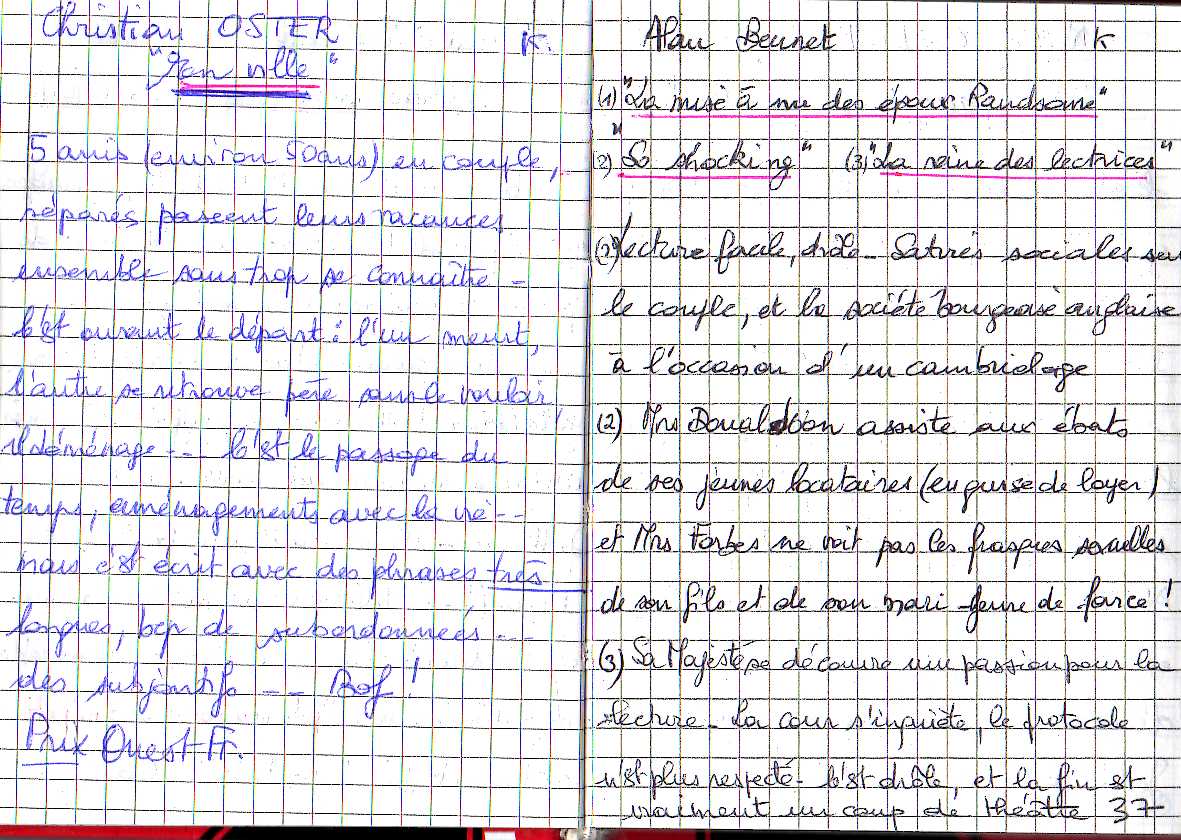 Christian OSTER K.
"En ville"
5 amis (environ 50ans) en couple,
séparés passent leurs vacances
ensemble sans trop se connaître -
C'est avant le départ : l'un meurt,
l'autre se retrouve père sans le vouloir,
il déménage -- C'est le passage du
temps, aménagements avec la vie --
mais c'est écrit avec des phrases très
longues, bcp de subordonnées ---
des subjonctifs -- Bof !
Prix Ouest-Fr.
Alan Bennet K
(1) "La mise à nu des époux Randsome"
2) "So shocking" (3) "La reine des lectrices"
lecture facile, drôle - Satires sociales sur
le couple, et la société bourgeoise anglaise
à l'occasion d'un cambriolage
(2) Mrs Donaldson assiste aux ébats
de ses jeunes locataires (en guise de loyer)
et Mrs Forbes ne voit pas les frasques sexuelles
de son fils et de son mari - genre de farce !
(3) Sa Majesté se découvre une passion pour la
lecture - La cour s'inquiète, le protocole
n'est plus respecté - C'est drôle, et la fin est
vraiment un coup de théâtre 37